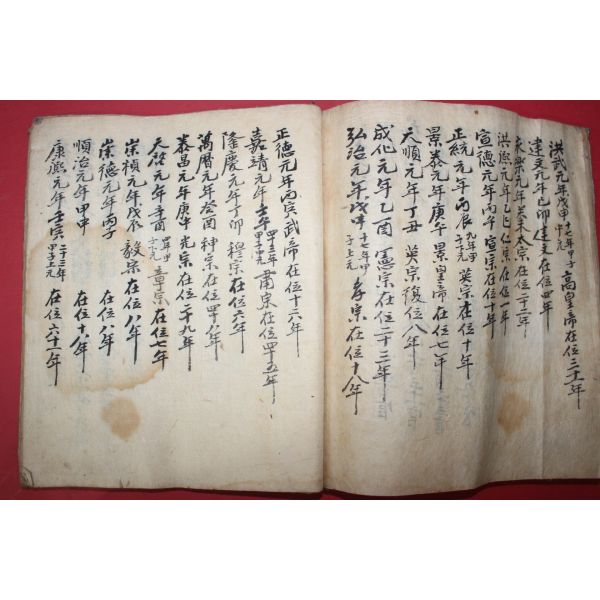 洪武元年戊申 十七年甲子中元 高皇帝在位三十一年
建文元年己卯 建文在位四年
永樂九年 癸未太宗在位二十二年
洪熙元年乙巳仁宗在位一年
宣德元年丙午 宣宗在位十年
正統元年丙辰 九年甲子下元 英宗在位十年
景泰元年庚午 景皇帝在位七年
天順元年丁丑 英宗復位八年
成化元年乙酉 憲宗在位二十三年
弘治元年戊申 十七年甲子上元 孝宗在位十八年
正德元年丙寅 武帝在位十六年
嘉靖元年壬午 四十三年甲子中元 肅宗在位四十五年
隆慶元年丁卯 穆宗在位六年
萬曆元年癸酉 神宗在位四十八年
泰昌元年庚午 光宗在位二十九年
天啓元年辛酉 四年甲子下元 章宗在位七年
崇楨元年戊辰 毅宗在位八年
崇德元年丙子 在位八年
順治元年甲申 在位十八年
康熙元年壬寅 二十三年甲子上元 在位六十一年